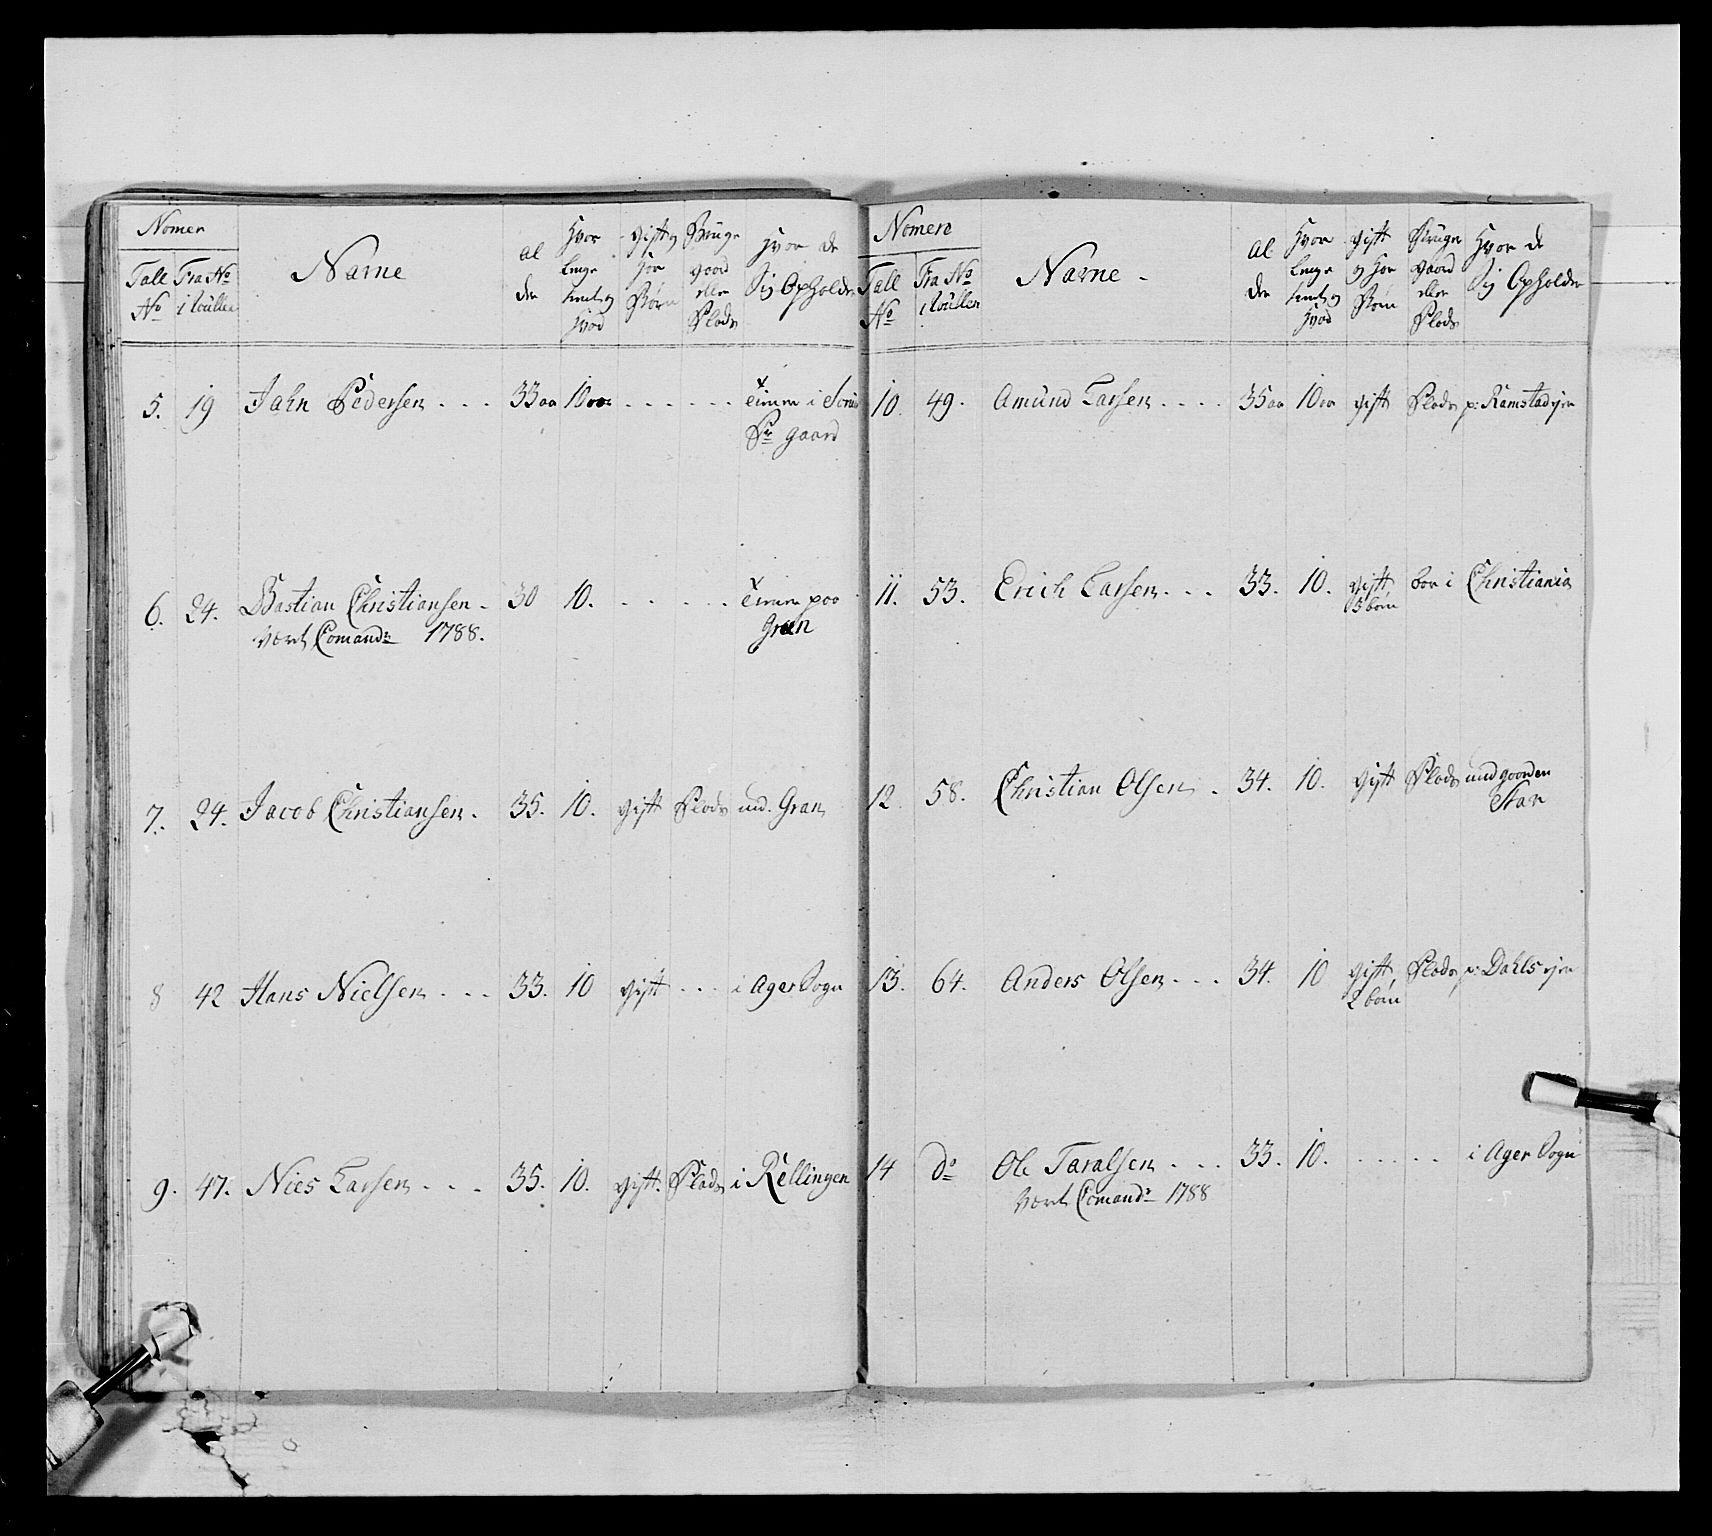 Nomer
Tall Fra No
No i Rullen
Name
Al
der
Hvor
lenge
tient og
hvad
gift og
hor
Børn
Bruge
gaard
eller
Plads
Hvor de
Sig Opholder
5. 19 Jahn Pedersen . . . 33 aar 10 aar . . . . . . tienner i
Pr gaard
6. 24. Bastian Christiansen . 30 10. . . . . . tienner paa
Gran
Vært Comandr 1788.
7. 24. Jacob Christiansen . 35. 10. gift Plads und. Gran
8 42 Hans Nielsen . . . 33. 10 gift . . . i Ager Sogn
9. 47. Nies Larsen . . . 35. 10. gift. Plads i Rellingen
Nomera
Tall Fra No
No i Rullen
Name
Al
der
Hvor
lenge
tient og
hvad
gift
og hor
Børn
Bruger
gaard
eller
Plads
Hvor de
Sig Opholder
10. 49. Amund Larsen . . . . 35 aar 10 aar gift Plads p: Ramstad ejer
11. 53. Erich Larsen . . . 33. 10. gift boe i Christiania
3 børn
12. 58. Christian Olsen . 34. 10. gift Plads und gaarden
Star
13. 64. Anders Olsen . . . 34. 10 gift Plads p: Dahls ejer
2 børn
14 do Ole Taralsen . . . 33. 10. . . . . . i Ager Sogn
Vært Comandr 1788